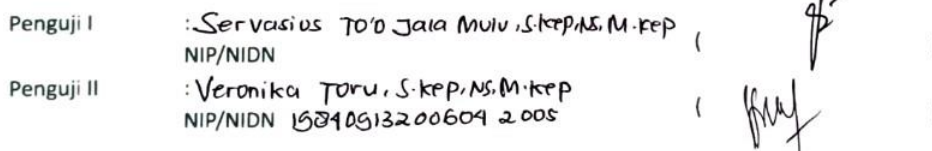 Penguji I : Servasius TO'O Jala Mulu, S.kep,NS, M.kep (
NIP/NIDN
Penguji II : Veronika Toru, S.kep, NS, M.kep (
NIP/NIDN 19840913200604 2 005